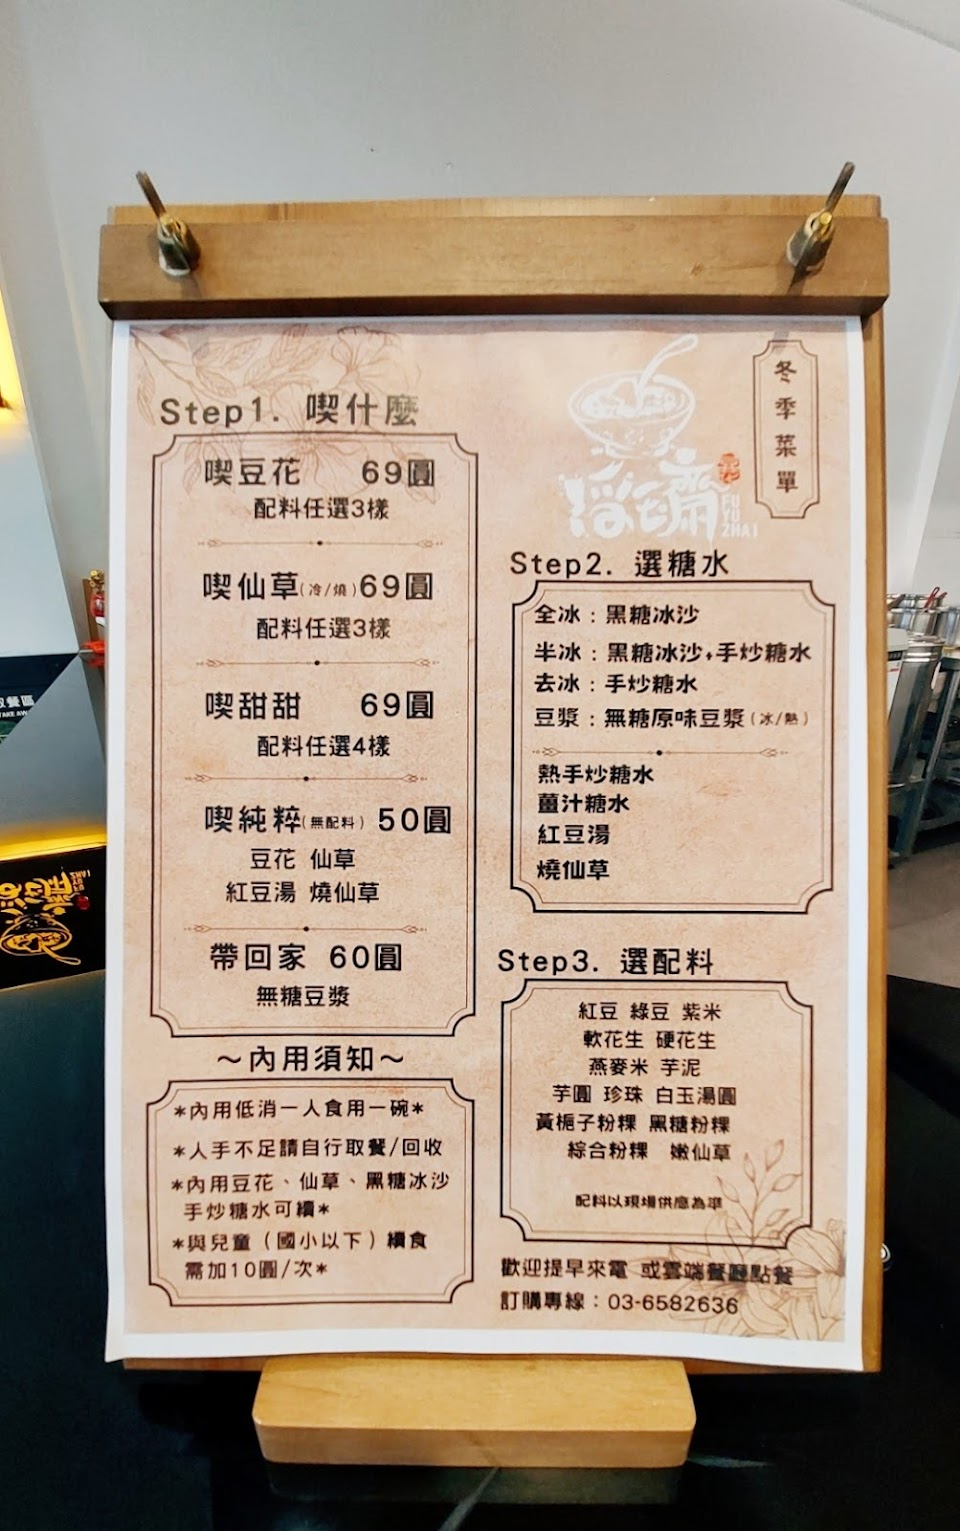 冬季菜單
Step1. 喫什麼
喫豆花 69圓
配料任選3樣
喫仙草(冷/燒)69圓
配料任選3樣
喫甜甜 69圓
配料任選4樣
喫純粹(無配料) 50圓
豆花 仙草
紅豆湯 燒仙草
帶回家 60圓
無糖豆漿
～內用須知～
*內用低消一人食用一碗*
*人手不足請自行取餐/回收
*內用豆花、仙草、黑糖冰沙
手炒糖水可續*
*與兒童（國小以下）續食
需加10圓/次*
FU
ZHAI
Step2. 選糖水
全冰：黑糖冰沙
半冰：黑糖冰沙+手炒糖水
去冰：手炒糖水
豆漿：無糖原味豆漿(冰/熱)
熱手炒糖水
薑汁糖水
紅豆湯
燒仙草
Step3. 選配料
紅豆 綠豆 紫米
軟花生 硬花生
燕麥米 芋泥
芋圓 珍珠 白玉湯圓
黃梔子粉粿 黑糖粉粿
綜合粉粿 嫩仙草
配料以現場供應為準
歡迎提早來電 或雲端餐廳點餐
訂購專線：03-6582636
取餐區
TAKE AW